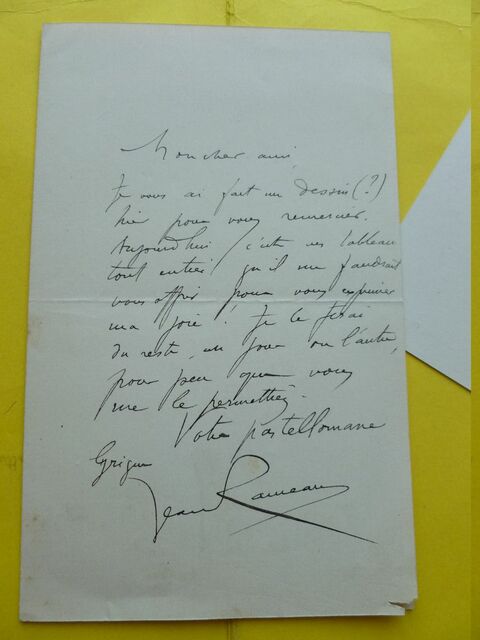 Mon cher ami,
Je vous ai fait un dessin (?)
hier pour vous remercier.
Aujourd'hui c'est un tableau
tout entier qu'il me faudrait
vous offrir pour vous exprimer
ma joie ! Je le ferai
du reste, un jour ou l'autre,
pour peu que vous
me le permettiez.
Votre pastellomane
Jean Rameau